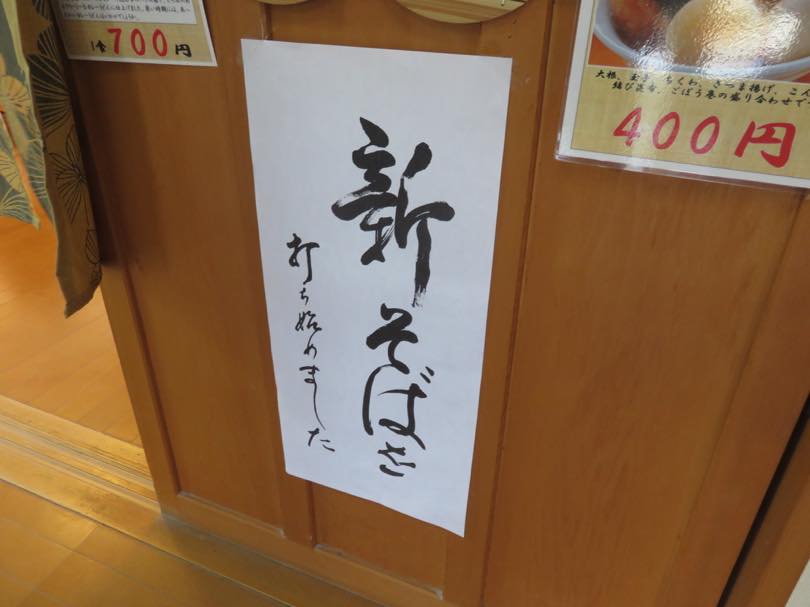 新そばを
打ち始めました
1食700円
大根、玉子、ちくわ、さつま揚げ、こん
結び昆布、ごぼう巻の盛り合わせで
400円